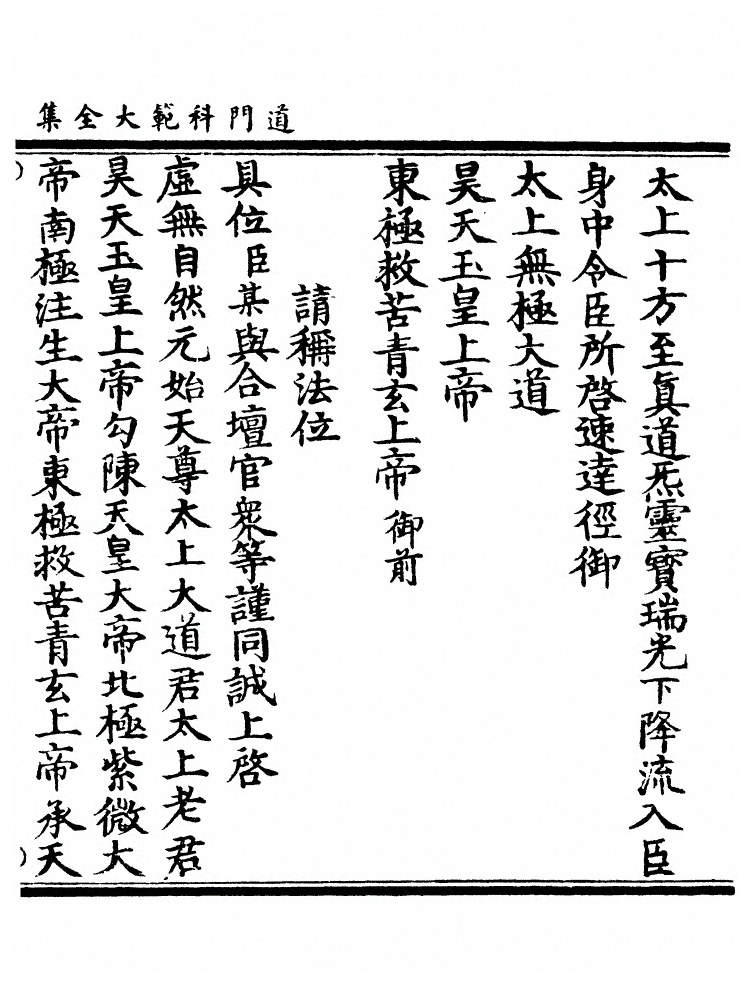 道門科範大全集
太上十方至眞道炁靈寳瑞光下降流入臣
身中令臣所啓速達徑御
太上無極大道
昊天玉皇上帝
東極救苦青玄上帝御前
請稱法位
具位臣某與合壇官衆等謹同誠上啓
虛無自然元始天尊太上大道君太上老君
昊天玉皇上帝勾陳天皇大帝北極紫微大
帝南極注生大帝東極救苦青玄上帝承天